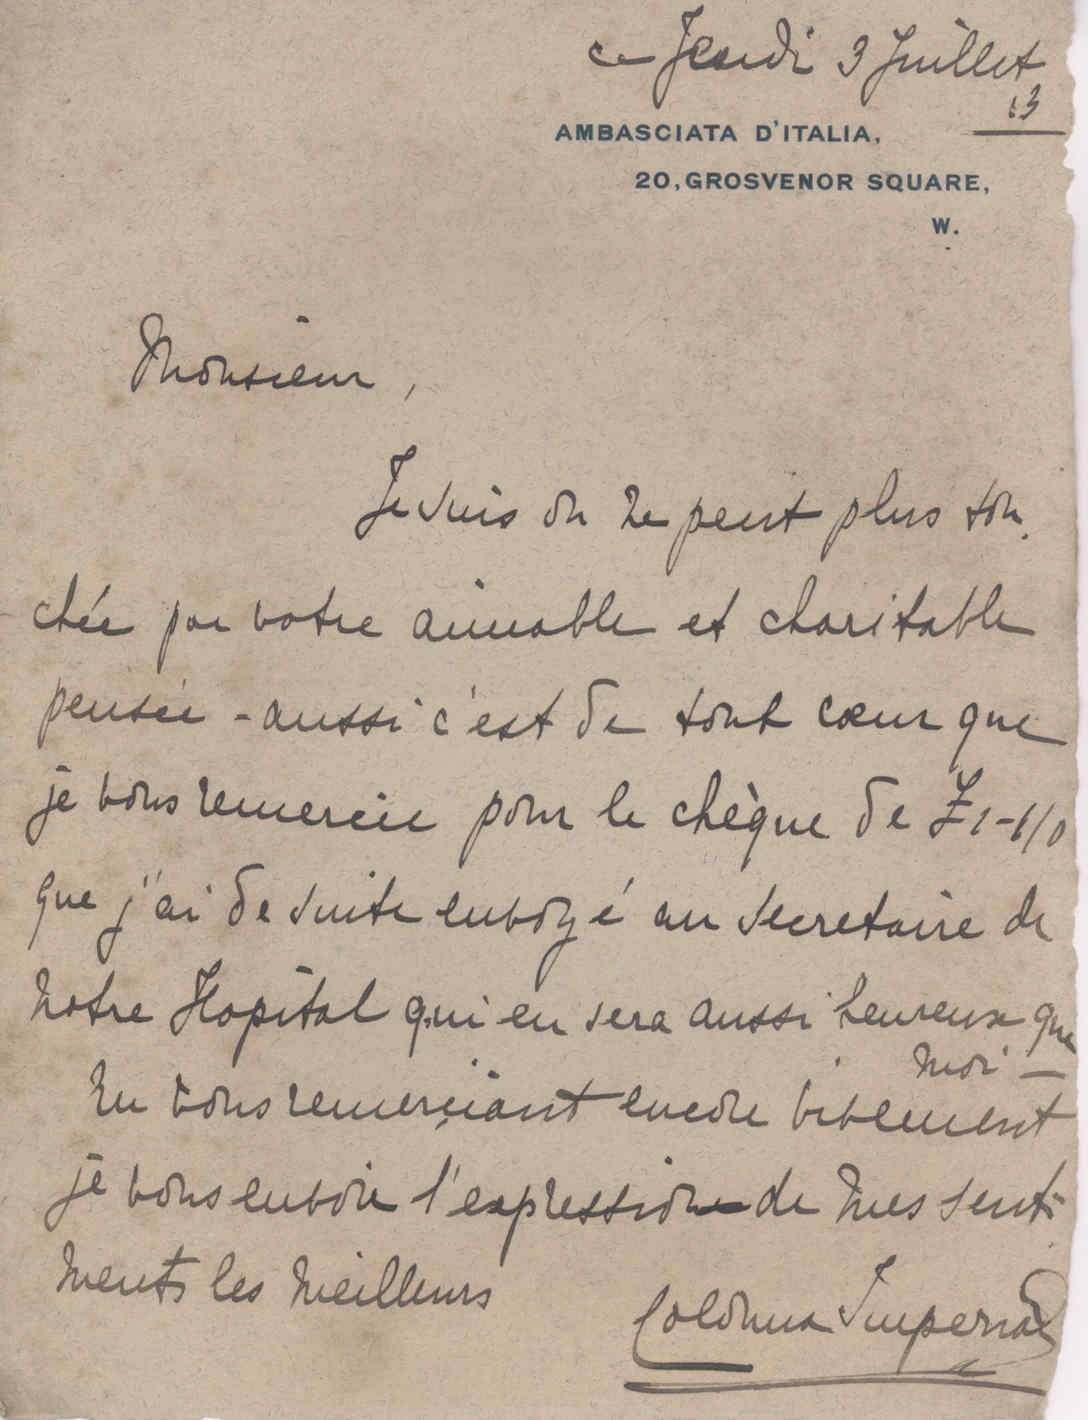 ce Jeudi 3 Juillet
13
AMBASCIATA D'ITALIA,
20, GROSVENOR SQUARE,
W.
Monsieur,
Je suis on ne peut plus tou-
chée par votre aimable et charitable
pensée - aussi c'est de tout cœur que
je vous remercie pour le chèque de £1-1/0
que j'ai de suite envoyé au Secretaire de
notre Hopital qui en sera aussi heureux que
moi -
En vous remerciant encore vivement
je vous envoie l'expression de mes senti-
ments les meilleurs
Colonna Imperiali